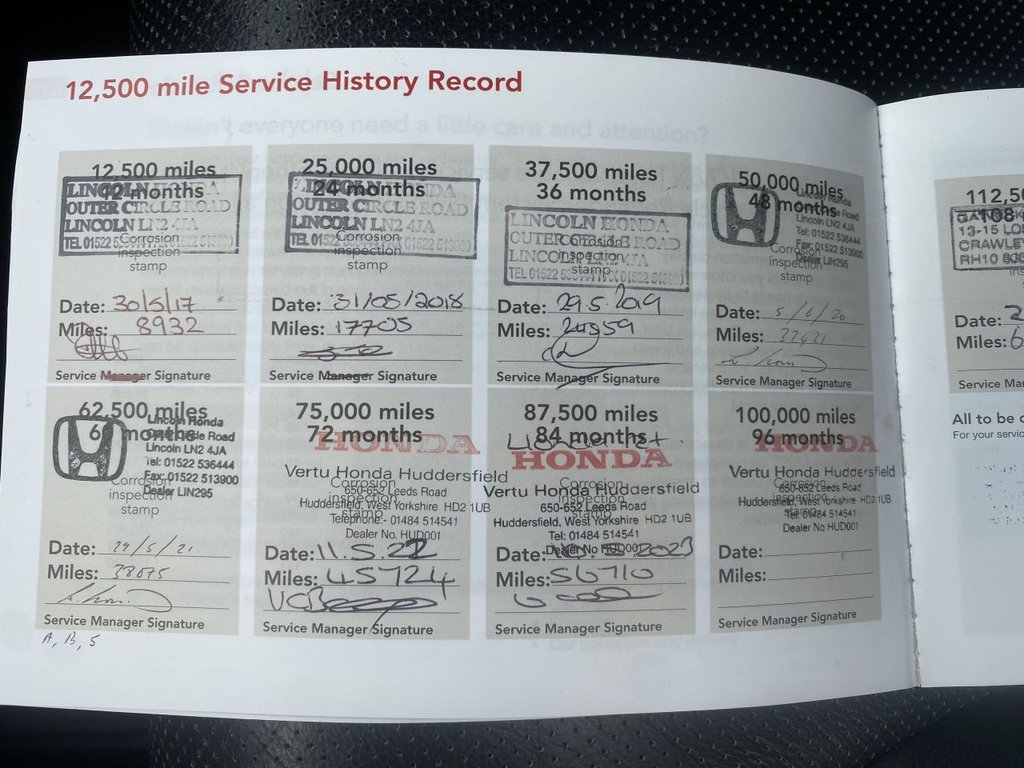 12,500 mile Service History Record
12,500 miles
12 months
LINCOLN
OUTER CIRCLE ROAD
LINCOLN LN2 4JA
TEL 01522
Corrosion
inspection
stamp
Date: 30/5/17
Miles: 8932
Service Manager Signature
25,000 miles
24 months
LINCOLN HONDA
OUTER CIRCLE ROAD
LINCOLN LN2 4JA
TEL 01522 513900
Corrosion
inspection
stamp
Date: 31/05/2018
Miles: 17705
Service Manager Signature
37,500 miles
36 months
LINCOLN HONDA
OUTER CIRCLE ROAD
LINCOLN LN2 4JA
TEL 01522 FAX 01522 513900
Corrosion
inspection
stamp
Date: 29.5.2019
Miles:
Service Manager Signature
50,000 miles
48 months
Lincoln Honda
Outer Circle Road
Lincoln LN2 4JA
Tel: 01522 536444
Fax: 01522 513900
Dealer LIN295
Corrosion
inspection
stamp
Date: 5/6/20
Miles:
Service Manager Signature
62,500 miles
60 months
Lincoln Honda
Outer Circle Road
Lincoln LN2 4JA
Tel: 01522 536444
Fax: 01522 513900
Dealer LIN295
Corrosion
inspection
stamp
Date: 29/5/21
Miles: 38675
Service Manager Signature
A, B, 5
75,000 miles
72 months
HONDA
Vertu Honda Huddersfield
650-652 Leeds Road
Huddersfield, West Yorkshire HD2 1UB
Telephone:- 01484 514541
Dealer No. HUD001
Corrosion
inspection
stamp
Date: 11.5.22
Miles: 45724
Service Manager Signature
87,500 miles
84 months
HONDA
Vertu Honda Huddersfield
650-652 Leeds Road
Huddersfield, West Yorkshire HD2 1UB
Tel: 01484 514541
Dealer No HUD001
Corrosion
inspection
stamp
Date: 2023
Miles: 56710
Service Manager Signature
100,000 miles
96 months
HONDA
Vertu Honda Huddersfield
650-652 Leeds Road
Huddersfield, West Yorkshire HD2 1UB
Tel: 01484 514541
Dealer No HUD001
Corrosion
inspection
stamp
Date:
Miles:
Service Manager Signature
112,5
108
13-15 LO
CRAWLE
RH10
Date: 2
Miles: 6
Service Ma
All to be c
For your servic